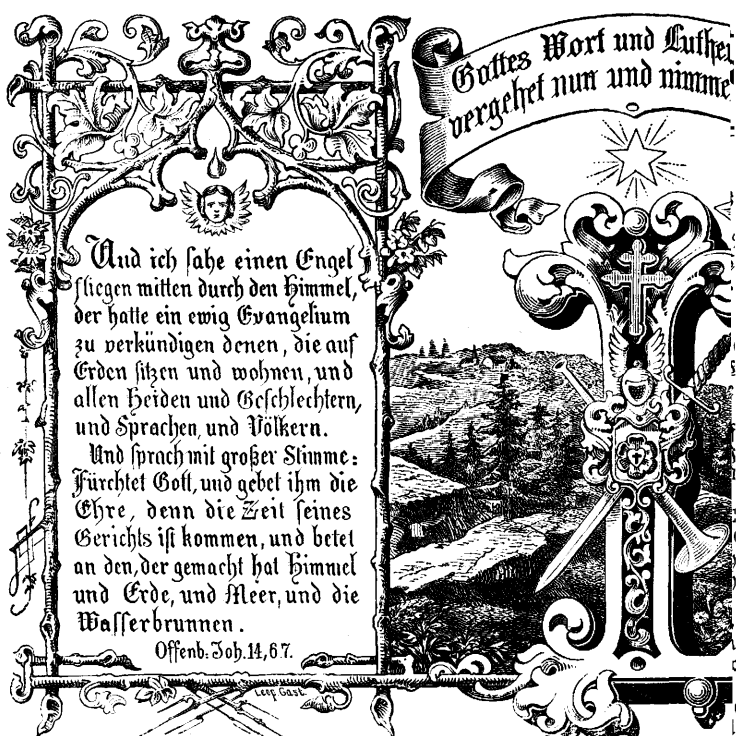 Und ich sahe einen Engel
fliegen mitten durch den Himmel,
der hatte ein ewig Evangelium
zu verkündigen denen, die auf
Erden sitzen und wohnen, und
allen Heiden und Geschlechtern,
und Sprachen, und Völkern.
Und sprach mit großer Stimme:
Fürchtet Gott, und gebet ihm die
Ehre, denn die Zeit seines
Gerichts ist kommen, und betet
an den, der gemacht hat Himmel
und Erde, und Meer, und die
Wasserbrunnen.
Offenb: Joh. 14, 6 7.
Leop Gast.
Gottes Wort und Luther
vergehet nun und nimme